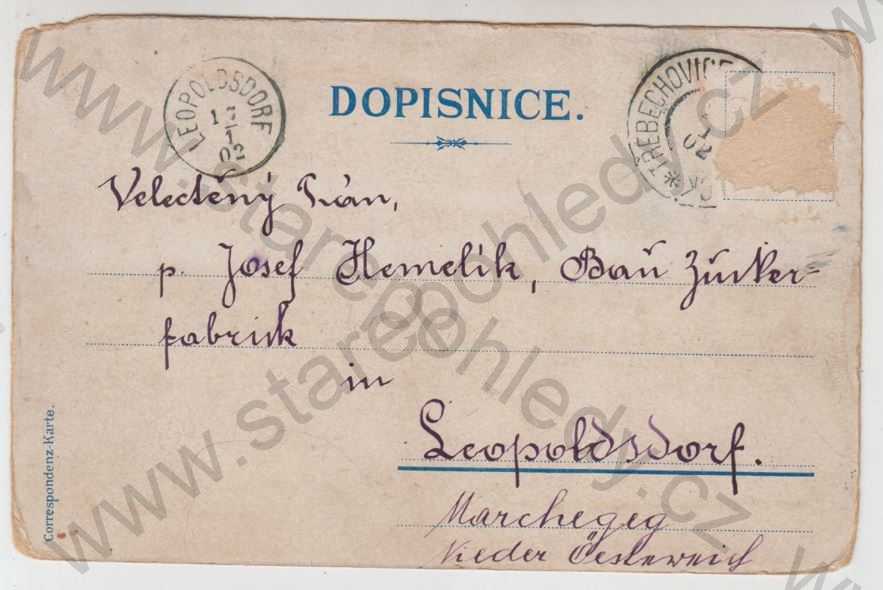 LEOPOLDSDORF
1
02
DOPISNICE.
TŘEBECHOVICE
1
02
Velectěný Pán,
p. Josef Hemelík, Bau Zucker=
fabrick
in
Leopoldsdorf.
Marchegeg
Nieder Öesterreich
Correspondenz-Karte.
www.starepohledy.cz
www.starepohledy.cz